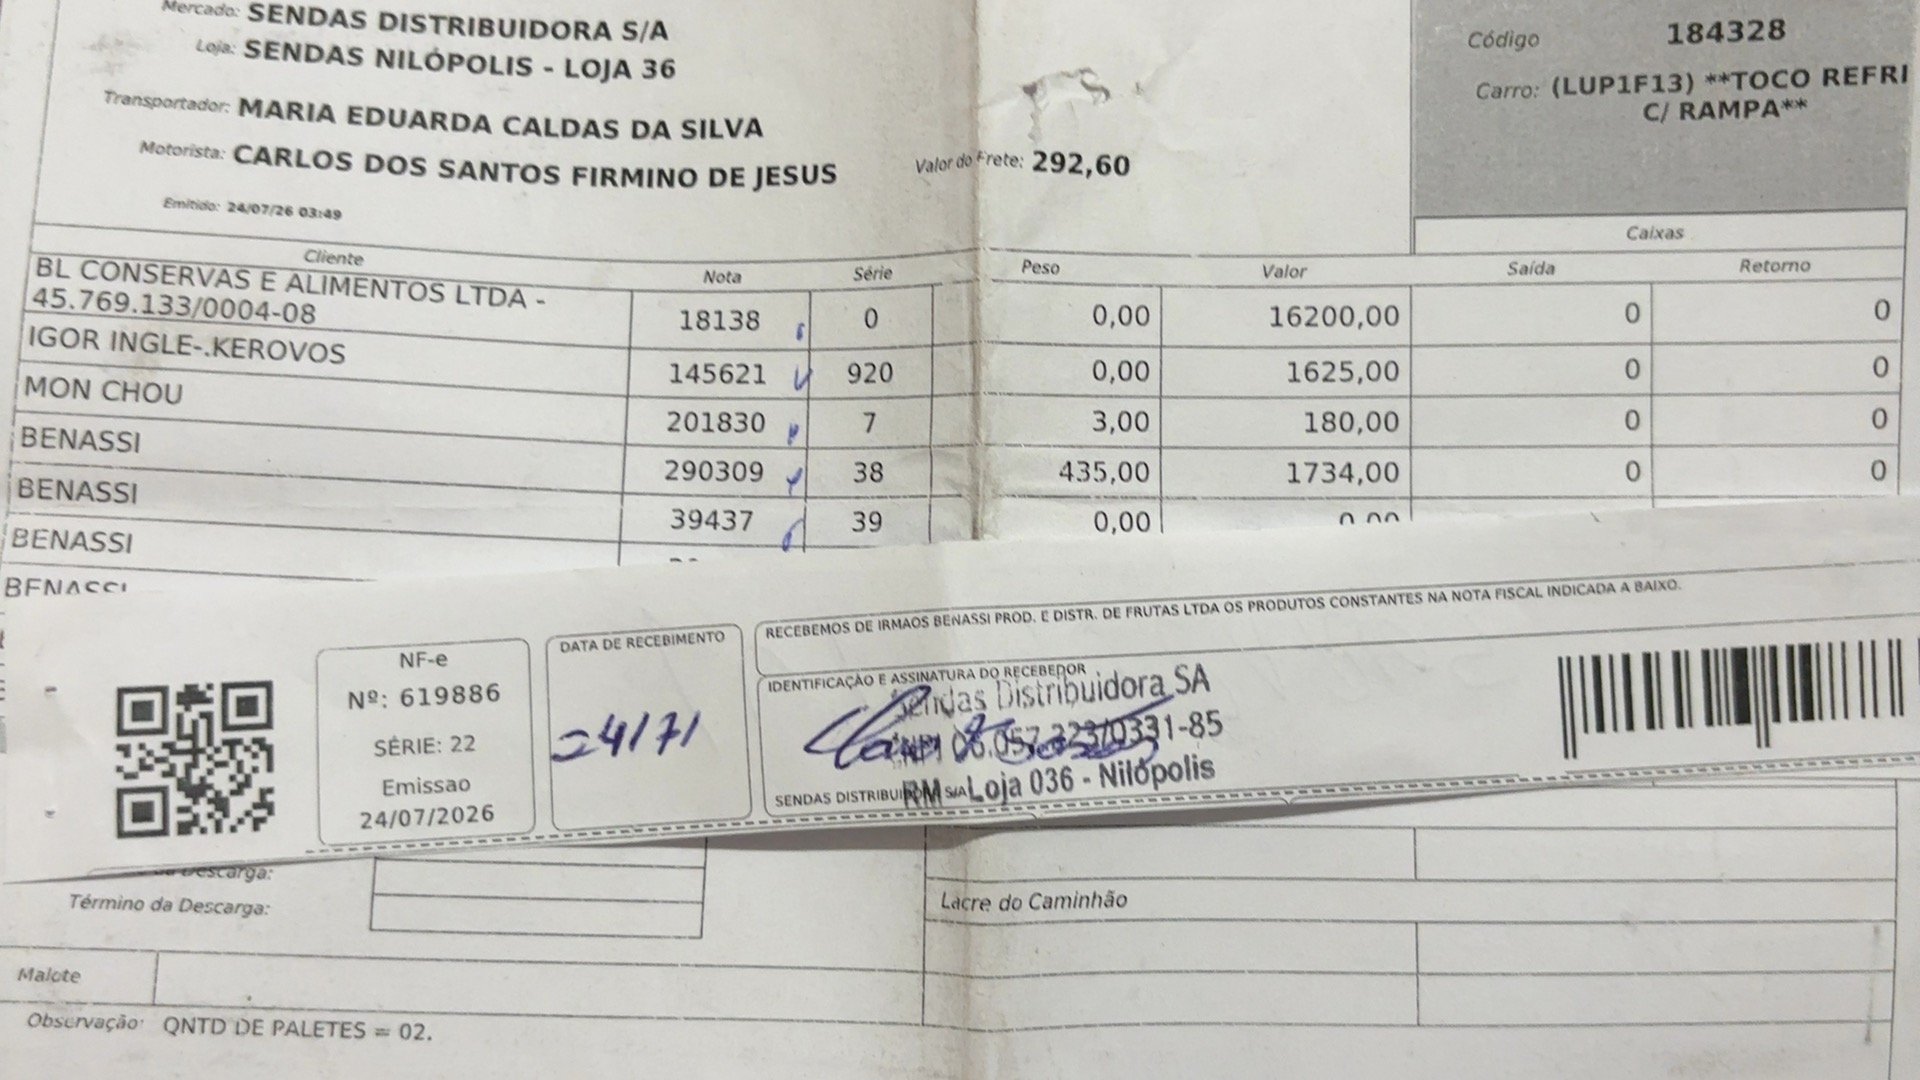 Mercado: SENDAS DISTRIBUIDORA S/A
Loja: SENDAS NILÓPOLIS - LOJA 36
Transportador: MARIA EDUARDA CALDAS DA SILVA
Motorista: CARLOS DOS SANTOS FIRMINO DE JESUS
Valor do Frete: 292,60
Emitido: 24/07/26 03:49
Código 184328
Carro: (LUP1F13) **TOCO REFRI
C/ RAMPA**
Caixas
Cliente Nota Série Peso Valor Saída Retorno
BL CONSERVAS E ALIMENTOS LTDA -
45.769.133/0004-08 18138 0 0,00 16200,00 0 0
IGOR INGLE-.KEROVOS 145621 920 0,00 1625,00 0 0
MON CHOU 201830 7 3,00 180,00 0 0
BENASSI 290309 38 435,00 1734,00 0 0
BENASSI 39437 39 0,00 0,00
BENASSI
BENASSI
NF-e
Nº: 619886
SÉRIE: 22
Emissao
24/07/2026
DATA DE RECEBIMENTO
24/7/
RECEBEMOS DE IRMAOS BENASSI PROD. E DISTR. DE FRUTAS LTDA OS PRODUTOS CONSTANTES NA NOTA FISCAL INDICADA A BAIXO.
IDENTIFICAÇÃO E ASSINATURA DO RECEBEDOR
Sendas Distribuidora SA
06.057.223/0331-85
RM - Loja 036 - Nilópolis
SENDAS DISTRIBUIDORA S/A
Descarga:
Término da Descarga:
Lacre do Caminhão
Malote
Observação: QNTD DE PALETES = 02.